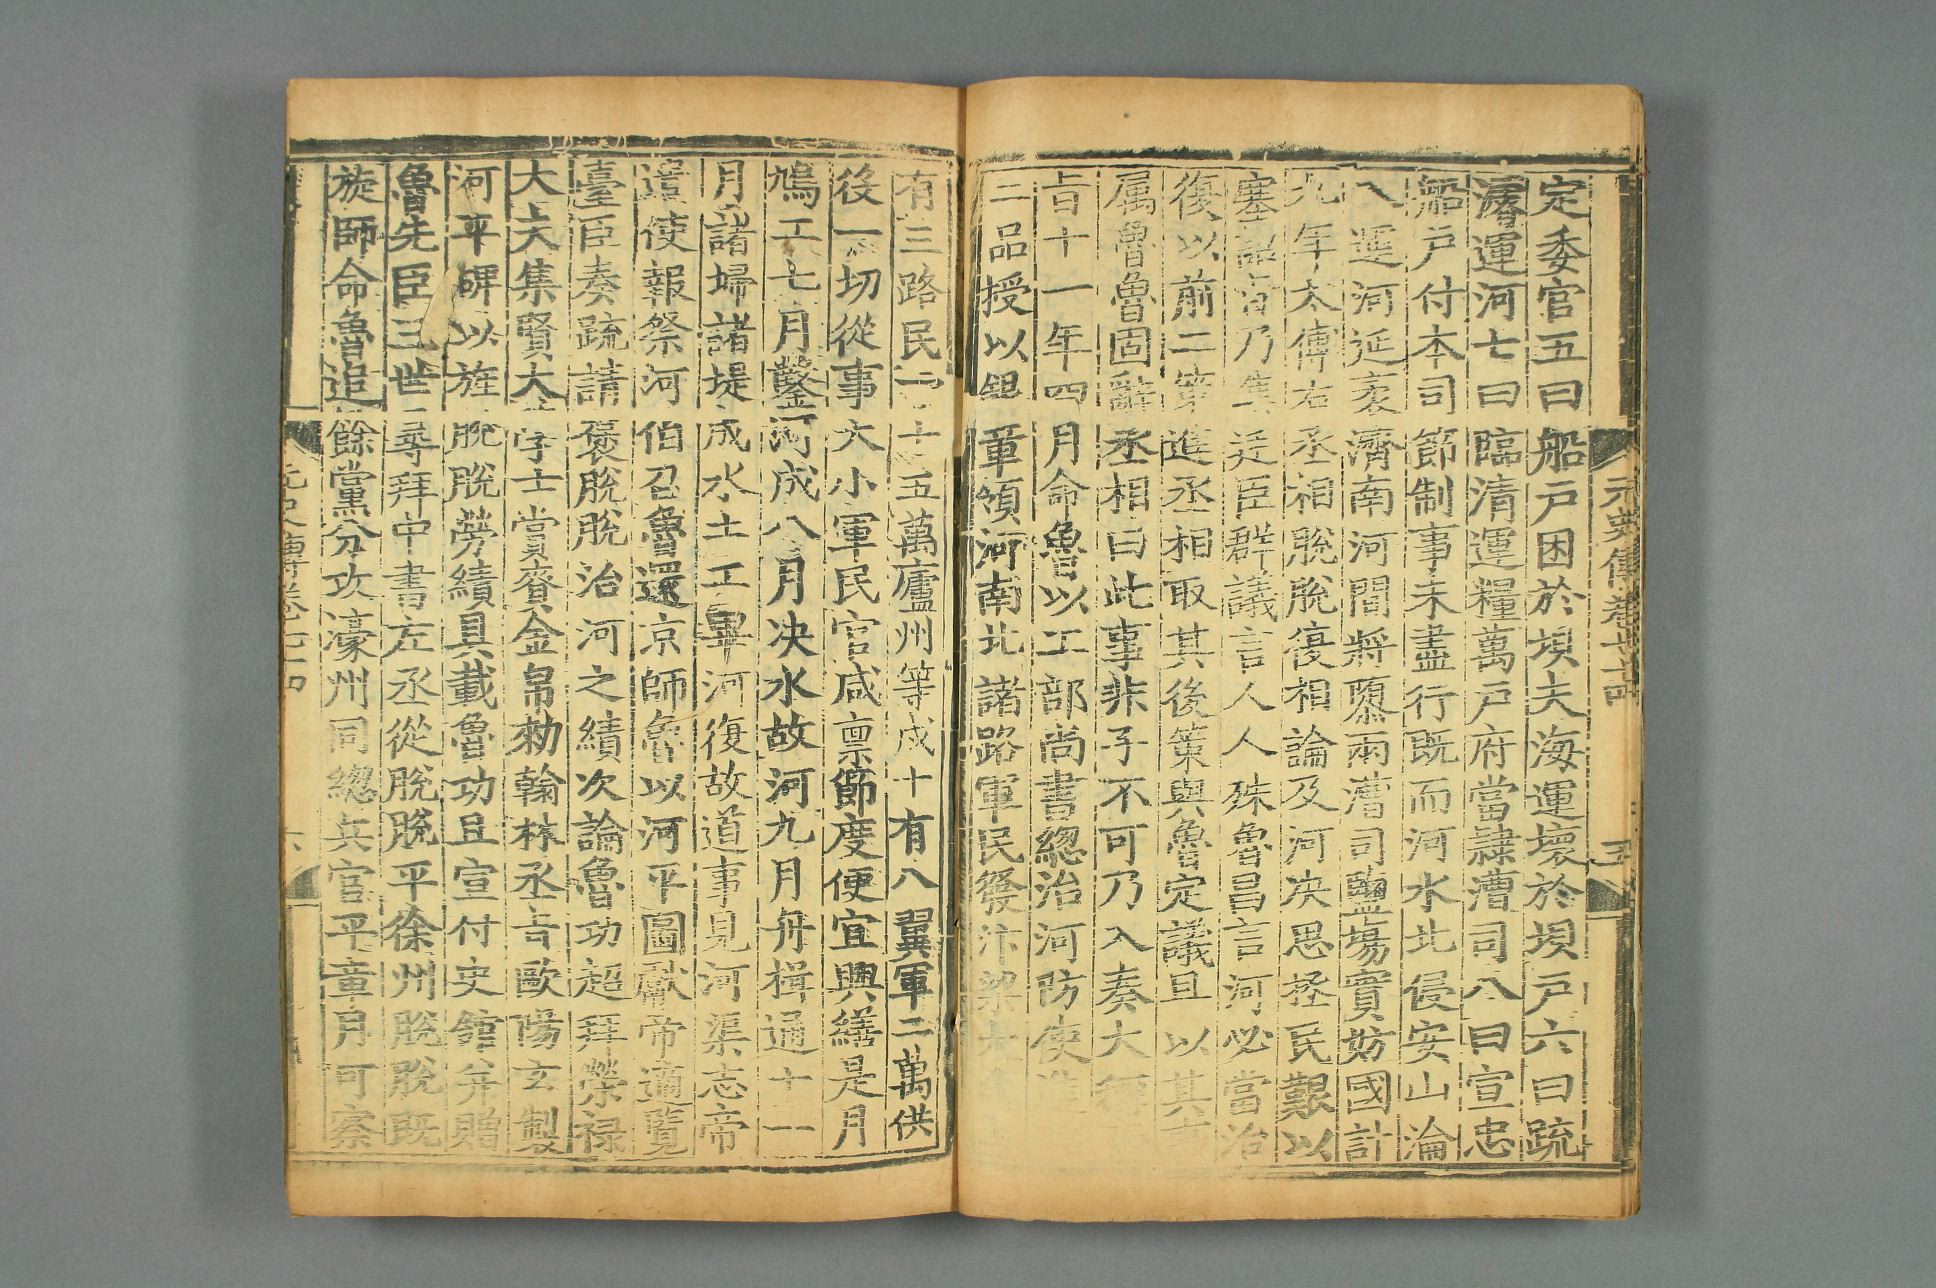 定委官五曰船戶困於埧夫海運壞於埧戶六曰疏
濬運河七曰臨清運糧萬戶府當隷漕司八曰宣忠
船戶付本司節制事未盡行既而河水北侵安山淪
入運河延袤濟南河間將隳兩漕司鹽場實妨國計
九年太傅右丞相脫脫復相論及河决思拯民艱以
塞詔旨乃集廷臣群議言人人殊魯昌言河必當治
復以前二策進丞相取其後策與魯定議且以其事
属魯魯固辭丞相曰此事非子不可乃入奏大稱
㫖十一年四月命魯以工部尚書總治河防使進
二品授以銀章領河南北諸路軍民發汴梁大名
有三路民一十五萬廬州等戍十有八翼軍二萬供
後一切從事大小軍民官咸禀節度便宜興繕是月
鳩工七月鑿河成八月决水故河九月舟楫通十一
月諸埽諸堤成水土工畢河復故道事見河渠志帝
遣使報祭河伯召魯還京師魯以河平圖獻帝適覽
臺臣奏疏請褒脫脫治河之績次論魯功超拜榮禄
大夫集賢大學士賞賚金帛勑翰林丞㫖歐陽玄製
河平碑以旌脫脫勞績具載魯功且宣付史館并贈
魯先臣三世尋拜中書左丞從脫脫平徐州脫脫既
旋師命魯追餘黨分攻濠州同總兵官平章月可察
元史傳卷七十四
六